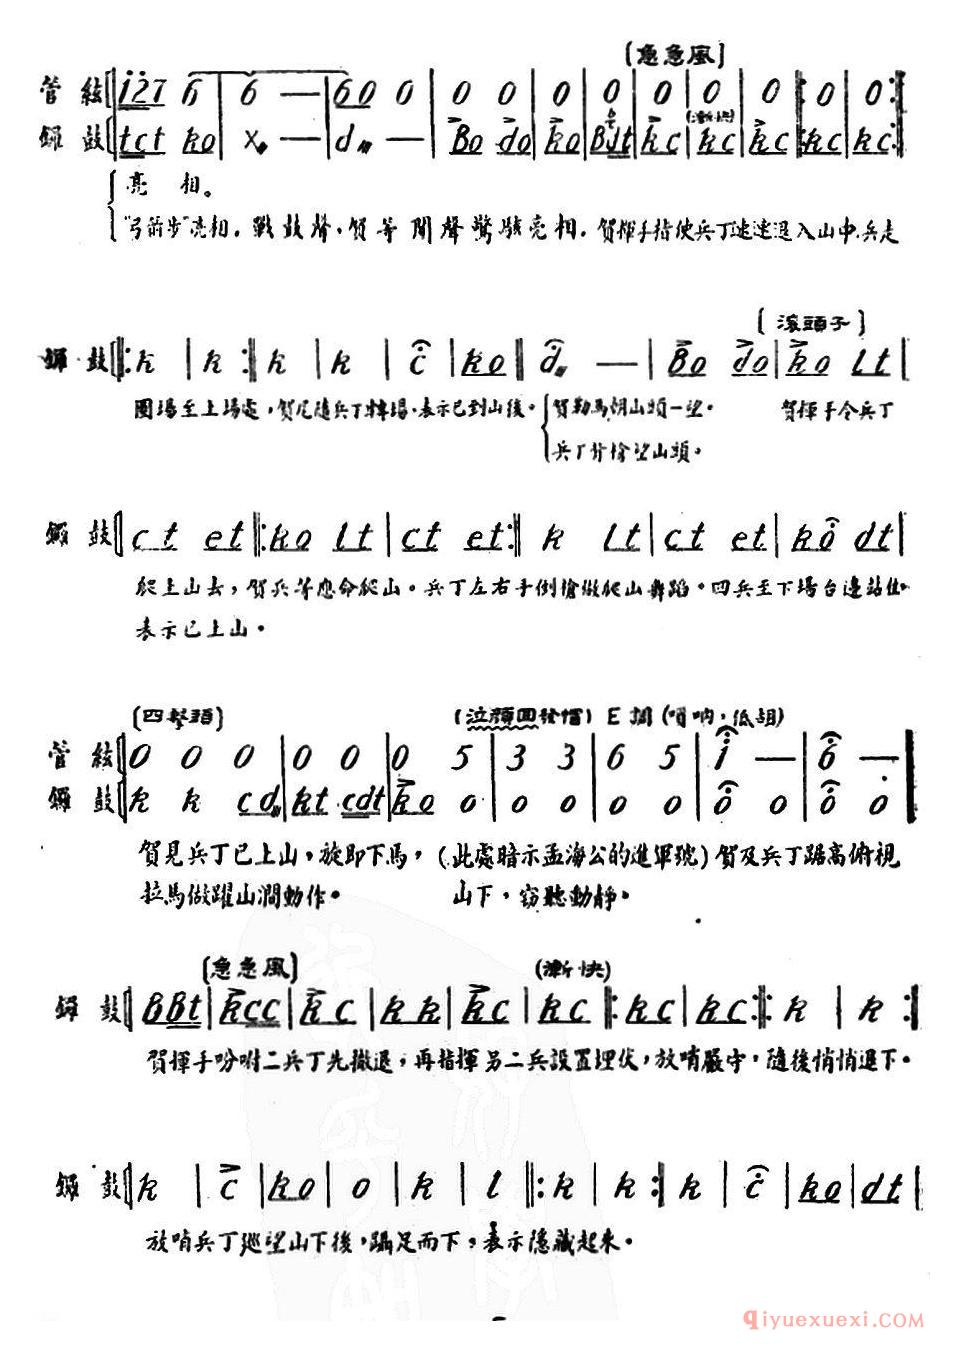 [急急風]
管絃 i27 6 | 6 — | 60 0 | 0 0 | 0 | 0 | 0 | 0 | 0 :0 | 0:
(漸快)
鑼鼓 tct ko | x — | d — | Bo do | ko | BJt | kc | kc | kc :kc | kc:
亮 相。
"弓箭步"亮相。戰鼓聲,賀等聞聲驚駭亮相。賀揮手指使兵丁速速退入山中.兵走
[滾頭子]
鑼鼓 : k | k : k | k | c | ko || d — | Bo do | ko lt |
圓場至上場處,賀尾隨兵丁轉場,表示已到山後。 賀勒馬朝山頭一望。 賀揮手令兵丁
兵丁背槍望山頭。
鑼鼓 ct et : ko lt | ct et : k lt | ct et | ko dt |
爬上山去,賀兵等應命爬山。兵丁左右手倒槍做爬山舞蹈。四兵至下場台邊站住。
表示已上山。
[四擊頭] E 調 (嗩吶,低胡)
管絃 0 0 0 | 0 0 | 0 5 | 3 3 | 6 5 | i — | 6 —
鑼鼓 k k cd | kt cdt | ko 0 | 0 0 | 0 0 | 0 0 | 0 0
賀見兵丁已上山,旋即下馬,(此處暗示孟海公的進軍號)賀及兵丁踞高俯視
拉馬做躍山澗動作。 山下,竊聽動靜。
[急急風] (漸快)
鑼鼓 BBt | kcc | kc | kk | kc | kc : kc | kc : k | k :
賀揮手吩咐二兵丁先撤退,再指揮另二兵設置埋伏,放哨嚴守,隨後悄悄退下。
鑼鼓 k | c | ko | o | k | l : k | k : k | c | ko | dt |
放哨兵丁巡望山下後,躡足而下,表示隱藏起來。
Qiyuexuexi.COM